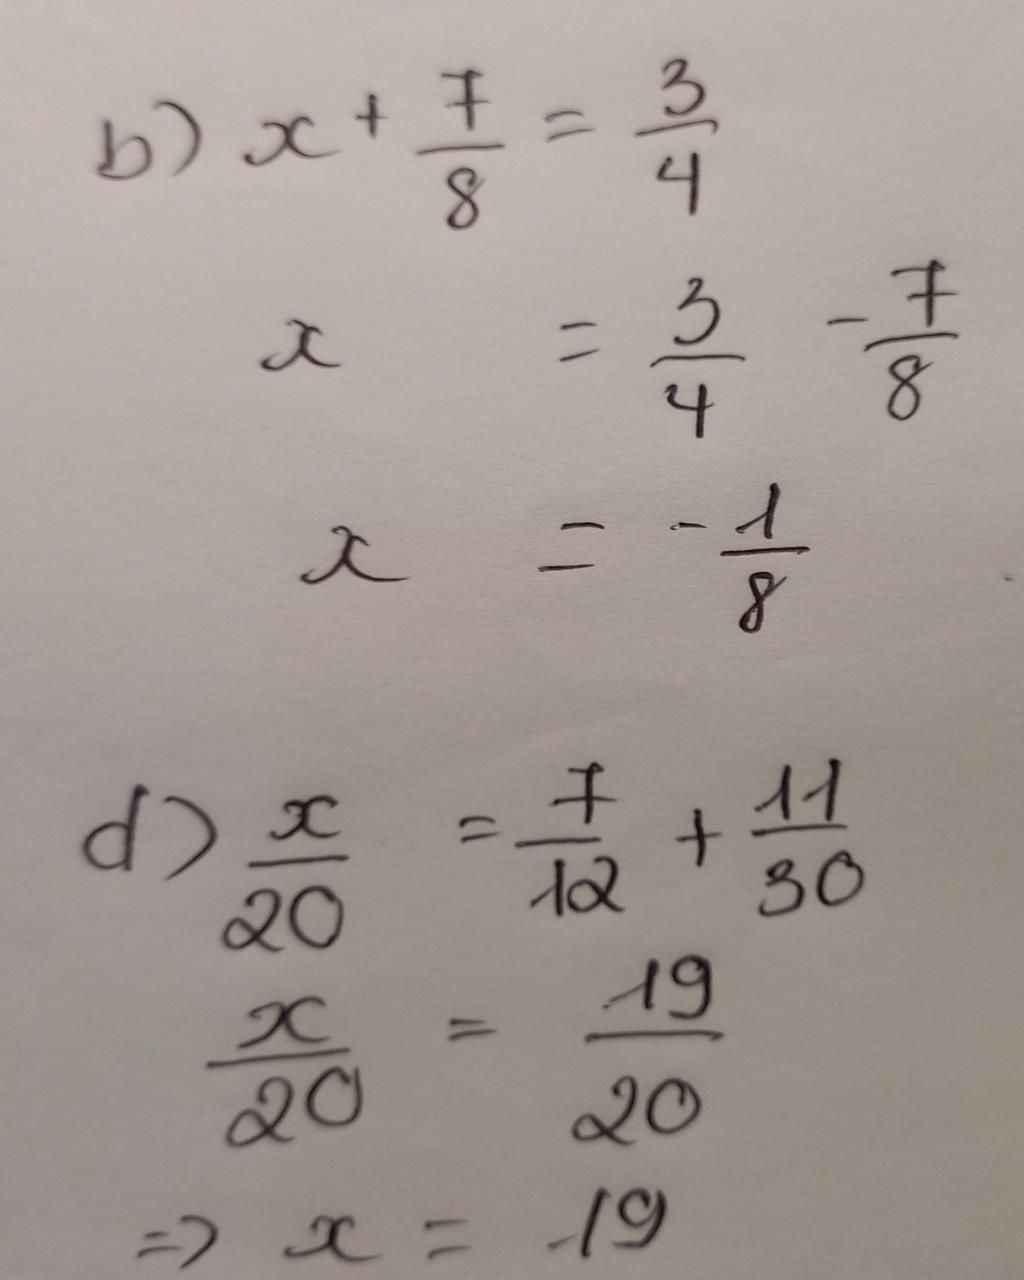 b) x + 7/8 = 3/4
x = 3/4 - 7/8
x = - 1/8
d) x/20 = 7/12 + 11/30
x/20 = 19/20
=> x = 19